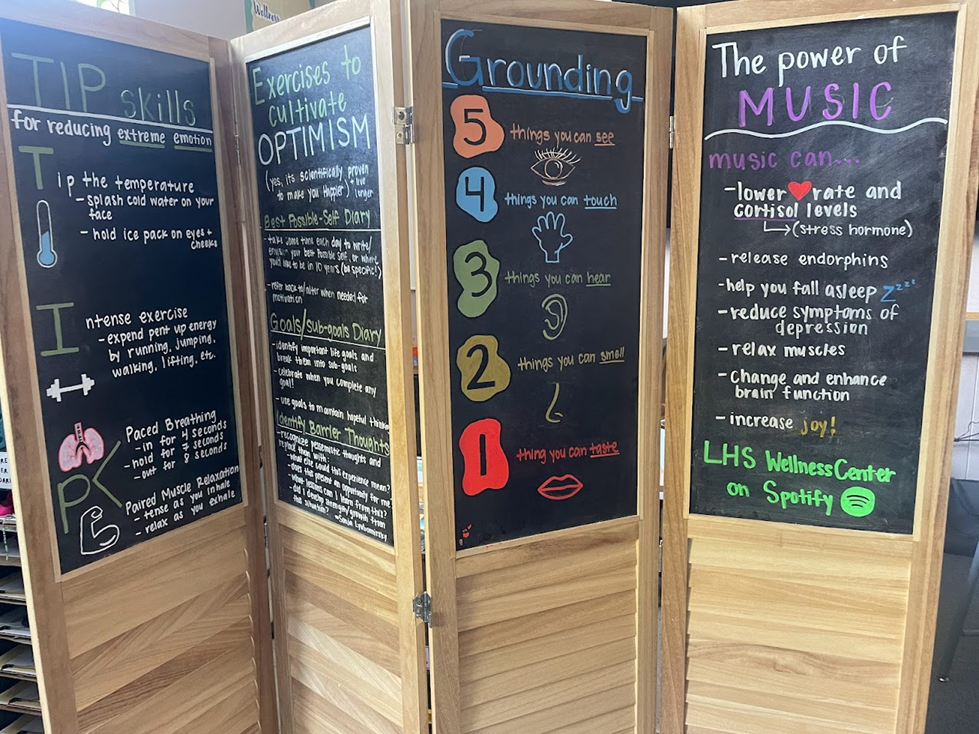 Wellness
TIP skills
for reducing extreme emotion
Tip the temperature
- splash cold water on your
face
- hold ice pack on eyes +
cheeks
Intense exercise
- expend pent up energy
by running, jumping,
walking, lifting, etc.
P
Paced Breathing
- in for 4 seconds
- hold for 7 seconds
- out for 8 seconds
Paired Muscle Relaxation
- tense as you inhale
- relax as you exhale
Exercises to
cultivate
OPTIMISM
(yes, it's scientifically proven
to make you happier) + live
longer
Best Possible-Self Diary
- take some time each day to write/
envision your best possible self, or where
you'd like to be in 10 years (be specific!)
- refer back to/alter when needed for
motivation
Goals/sub-goals Diary
- identify important life goals and
break them into sub-goals
- celebrate when you complete any
goal!
- use goals to maintain hopeful thinking
Identify Barrier Thoughts
- recognize pessimistic thoughts and
replace them with:
- what else could this experience mean?
- does this present an opportunity for me?
- what lessons can I learn from this?
- did I develop strength/growth from
the situation?
- Sonja Lyubomirsky
Grounding
5 things you can see
4 things you can touch
3 things you can hear
2 things you can smell
1 thing you can taste
The power of
MUSIC
music can...
- lower rate and
cortisol levels
(stress hormone)
- release endorphins
- help you fall asleep zzzz
- reduce symptoms of
depression
- relax muscles
- Change and enhance
brain function
- increase joy!
LHS Wellness Center
on Spotify